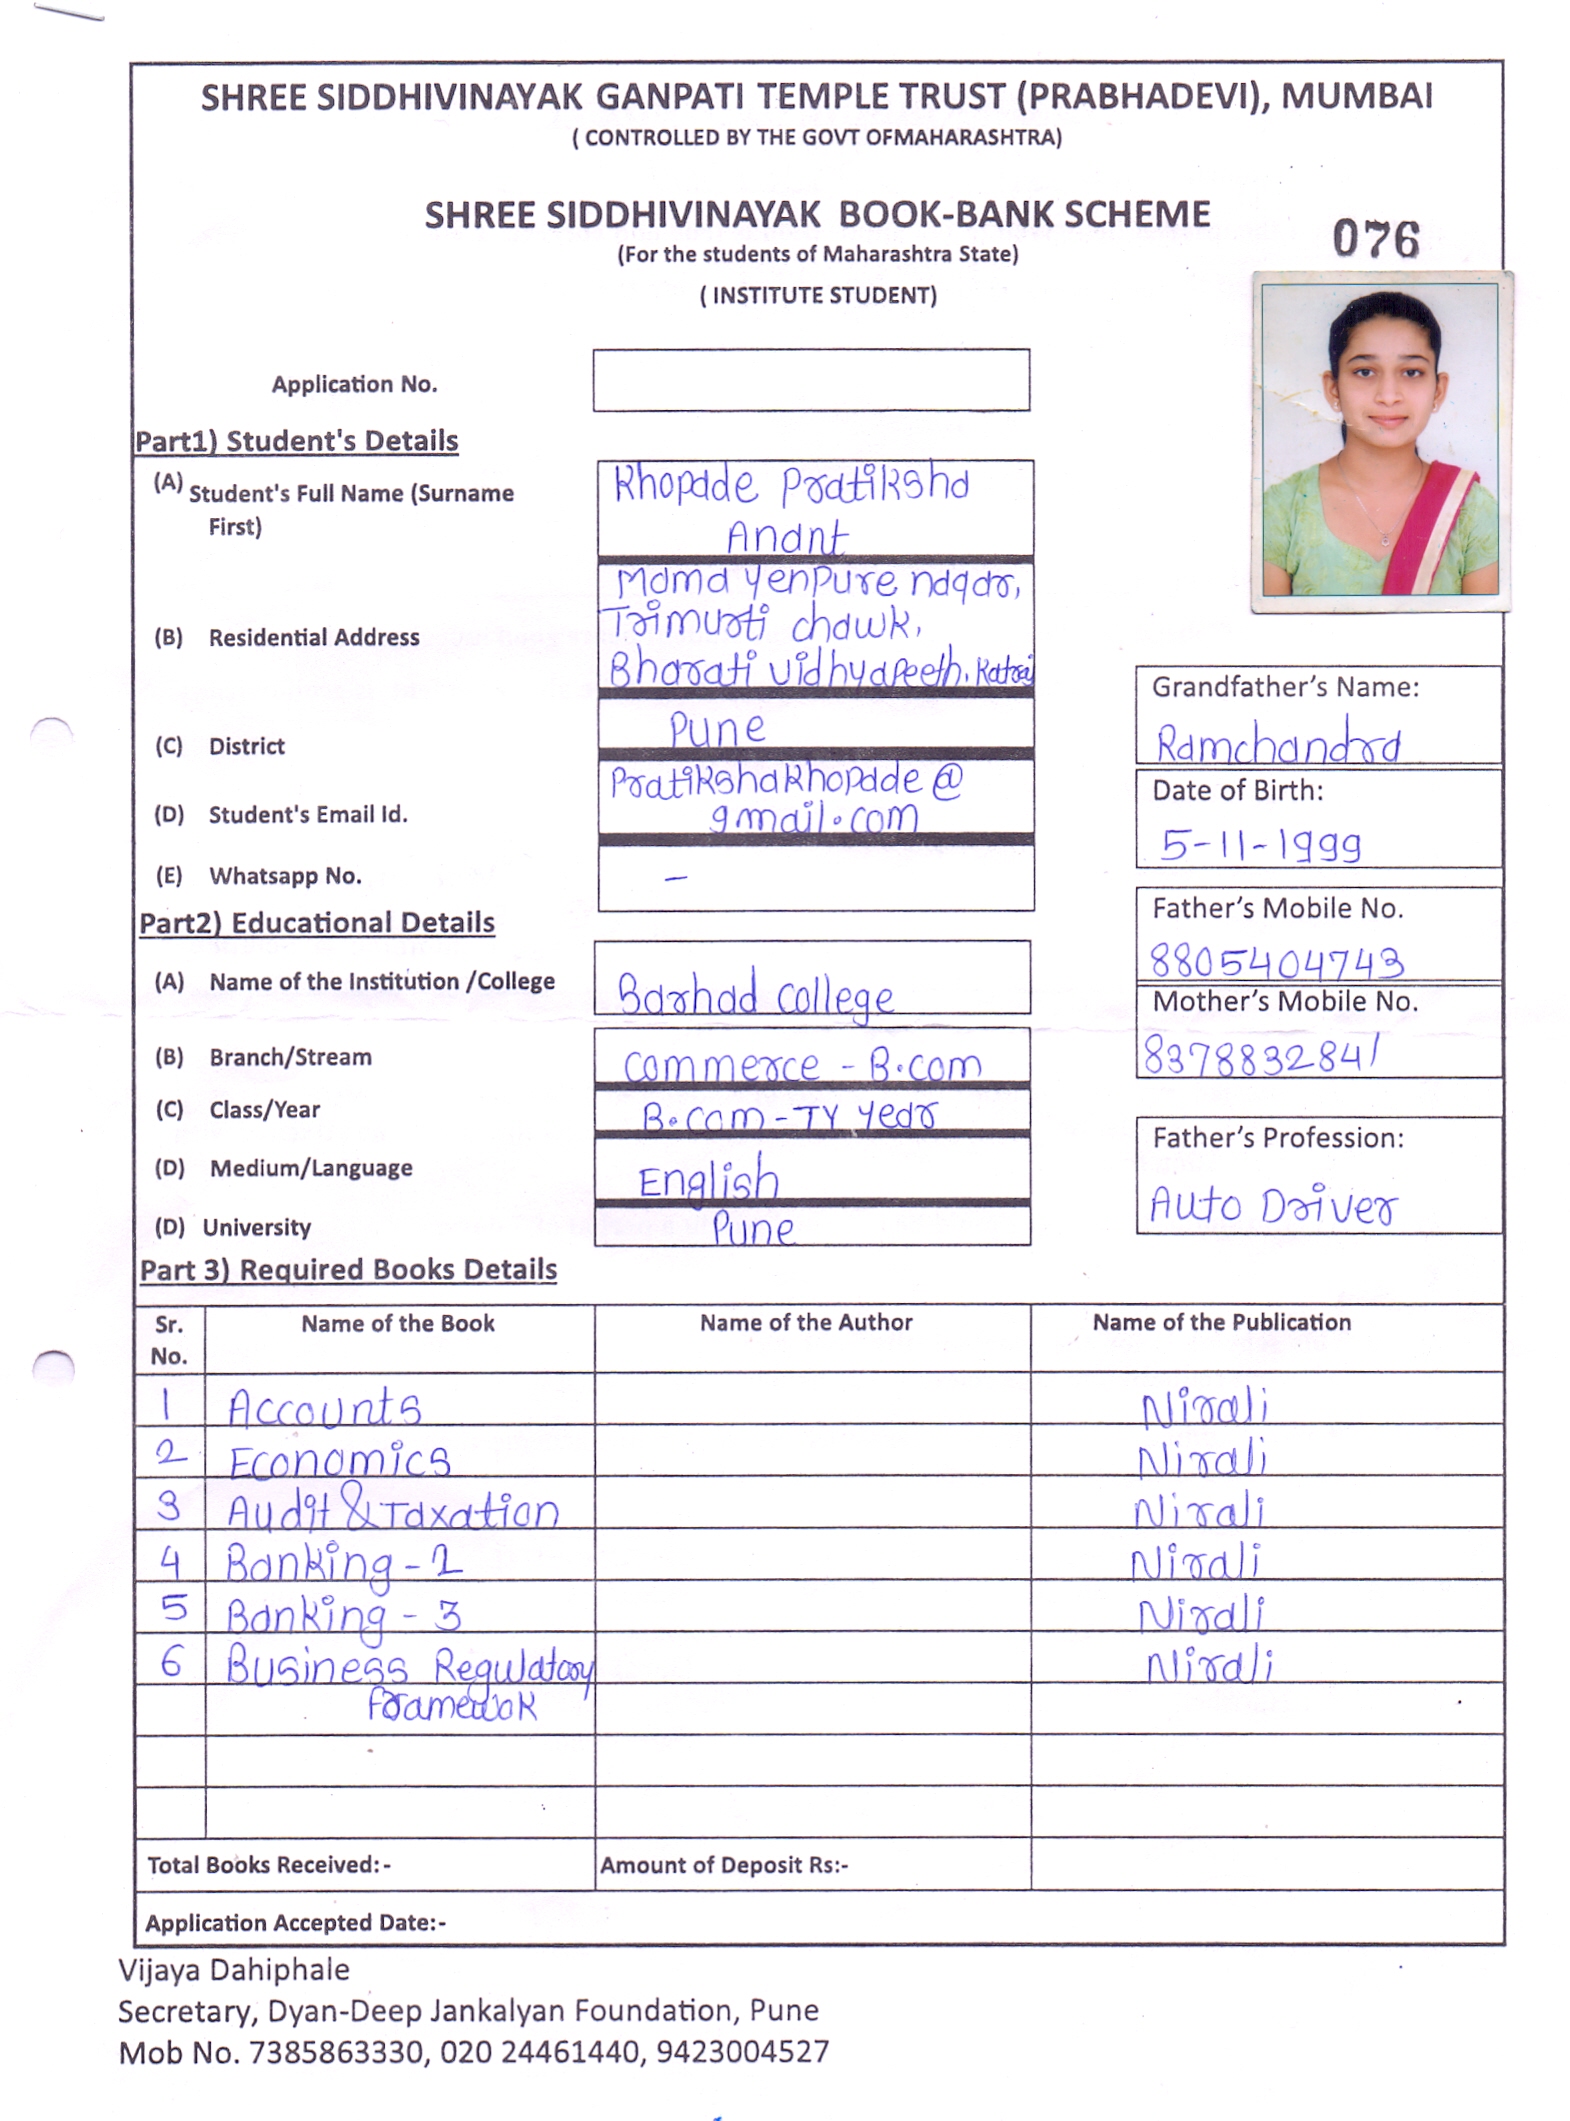 SHREE SIDDHIVINAYAK GANPATI TEMPLE TRUST (PRABHADEVI), MUMBAI
( CONTROLLED BY THE GOVT OFMAHARASHTRA)
SHREE SIDDHIVINAYAK BOOK-BANK SCHEME
076
(For the students of Maharashtra State)
( INSTITUTE STUDENT)
Application No.
Part1) Student's Details
(A) Student's Full Name (Surname
First)
Khopade Pratiksha
Anant
(B) Residential Address
Mama Yenpure nagar,
Trimurti chawk,
Bharati vidhyapeeth, Katraj
(C) District
Pune
(D) Student's Email Id.
Pratikshakhopade@
gmail.com
(E) Whatsapp No.
-
Grandfather's Name:
Ramchandra
Date of Birth:
5-11-1999
Father's Mobile No.
8805404743
Mother's Mobile No.
8378832841
Father's Profession:
Auto Driver
Part2) Educational Details
(A) Name of the Institution /College
Barhad college
(B) Branch/Stream
commerce - B.com
(C) Class/Year
B.com - TY year
(D) Medium/Language
English
(D) University
Pune
Part 3) Required Books Details
Sr. Name of the Book Name of the Author Name of the Publication
No.
1 Accounts Nirali
2 Economics Nirali
3 Audit & Taxation Nirali
4 Banking - 2 Nirali
5 Banking - 3 Nirali
6 Business Regulatory Nirali
framewok
Total Books Received:- Amount of Deposit Rs:-
Application Accepted Date:-
Vijaya Dahiphale
Secretary, Dyan-Deep Jankalyan Foundation, Pune
Mob No. 7385863330, 020 24461440, 9423004527